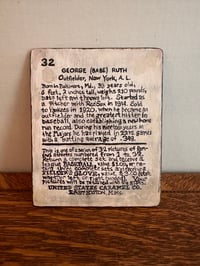 32
GEORGE (BABE) RUTH
Outfielder, New York, A. L.
Born in Baltimore, Md., 38 years old,
6 feet, 2 inches tall, weighs 210 pounds,
bats left and throws left. Started as
a Pitcher with Red Sox in 1914. Sold
to Yankees in 1920, when he became an
outfielder and the greatest hitter in
baseball, also establishing a new home
run record. During his
the Majors he has played in
with a batting average of .348.
This is one of a series of 32 pictures of
numbered from 1 to 32.
Return a complete set and receive a
League BASEBALL, value $1.00, or
return three complete sets and receive a
FIELDER'S GLOVE, value
pictures will be returned with the
UNITED STATES CARAMEL CO.
EAST BOSTON, MASS.